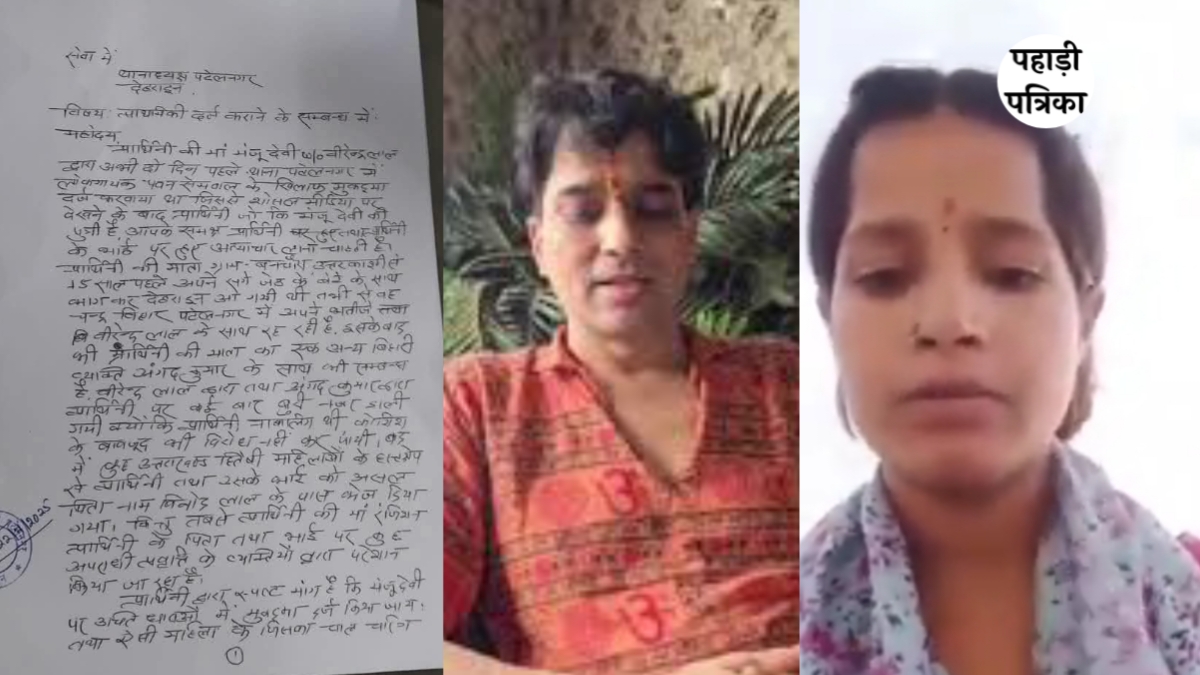 सेवा में
थानाध्यक्ष पटेलनगर
देहरादून.
विषय: प्राथमिकी दर्ज कराने के सम्बन्ध में.
महोदय,
प्रार्थिनी की मां मंजू देवी w/o वीरेन्द्र लाल
द्वारा अभी दो दिन पहले थाना पटेलनगर में
लोकगायक पवन सेमवाल के खिलाफ मुकदमा
दर्ज करवाया था जिसमें शोसल मीडिया पर
देखने के बाद प्रार्थिनी जो कि मंजू देवी की
पुत्री है आपके समक्ष प्रार्थिनी पर हुए तथा प्रार्थिनी
के भाई पर हुए अत्याचार लाना चाहती है।
प्रार्थिनी की माता ग्राम- उत्तरकाशी से
15 साल पहले अपने सगे जेठ के बेटे के साथ
भाग कर देहरादून आ गयी थी तभी से वह
चन्द्र विहार पटेलनगर में अपने भतीजे
वीरेन्द्र लाल के साथ रह रही है. इसके बाद
भी प्रार्थिनी की माता का एक अन्य बिहारी
व्यक्ति अंगद कुमार के साथ भी सम्बन्ध
है. वीरेन्द्र लाल द्वारा तथा अंगद कुमार द्वारा
प्रार्थिनी पर कई बार बुरी नजर डाली
गयी क्यों कि प्रार्थिनी नाबालिग थी कोशिश
के बावजूद भी विरोध नहीं कर पायी. बाद
में कुछ उत्तराखण्ड हितैषी महिलाओं के हस्तक्षेप
से प्रार्थिनी तथा उसके भाई को असल
पिता नाम विनोद लाल के पास भेज दिया
गया। किन्तु तबसे प्रार्थिनी की मां रंजिशन
प्रार्थिनी के पिता तथा भाई पर कुछ
अपराधी प्रवृत्ति के व्यक्तियों द्वारा परेशान
किया जा रहा है।
प्रार्थिनी द्वारा स्पष्ट मांग है कि मंजू देवी
पर उचित धाराओं में मुकदमा दर्ज किया जाय.
तथा ऐसी महिला के जिसका चाल चरित्र
1
2025
पहाड़ी
पत्रिका